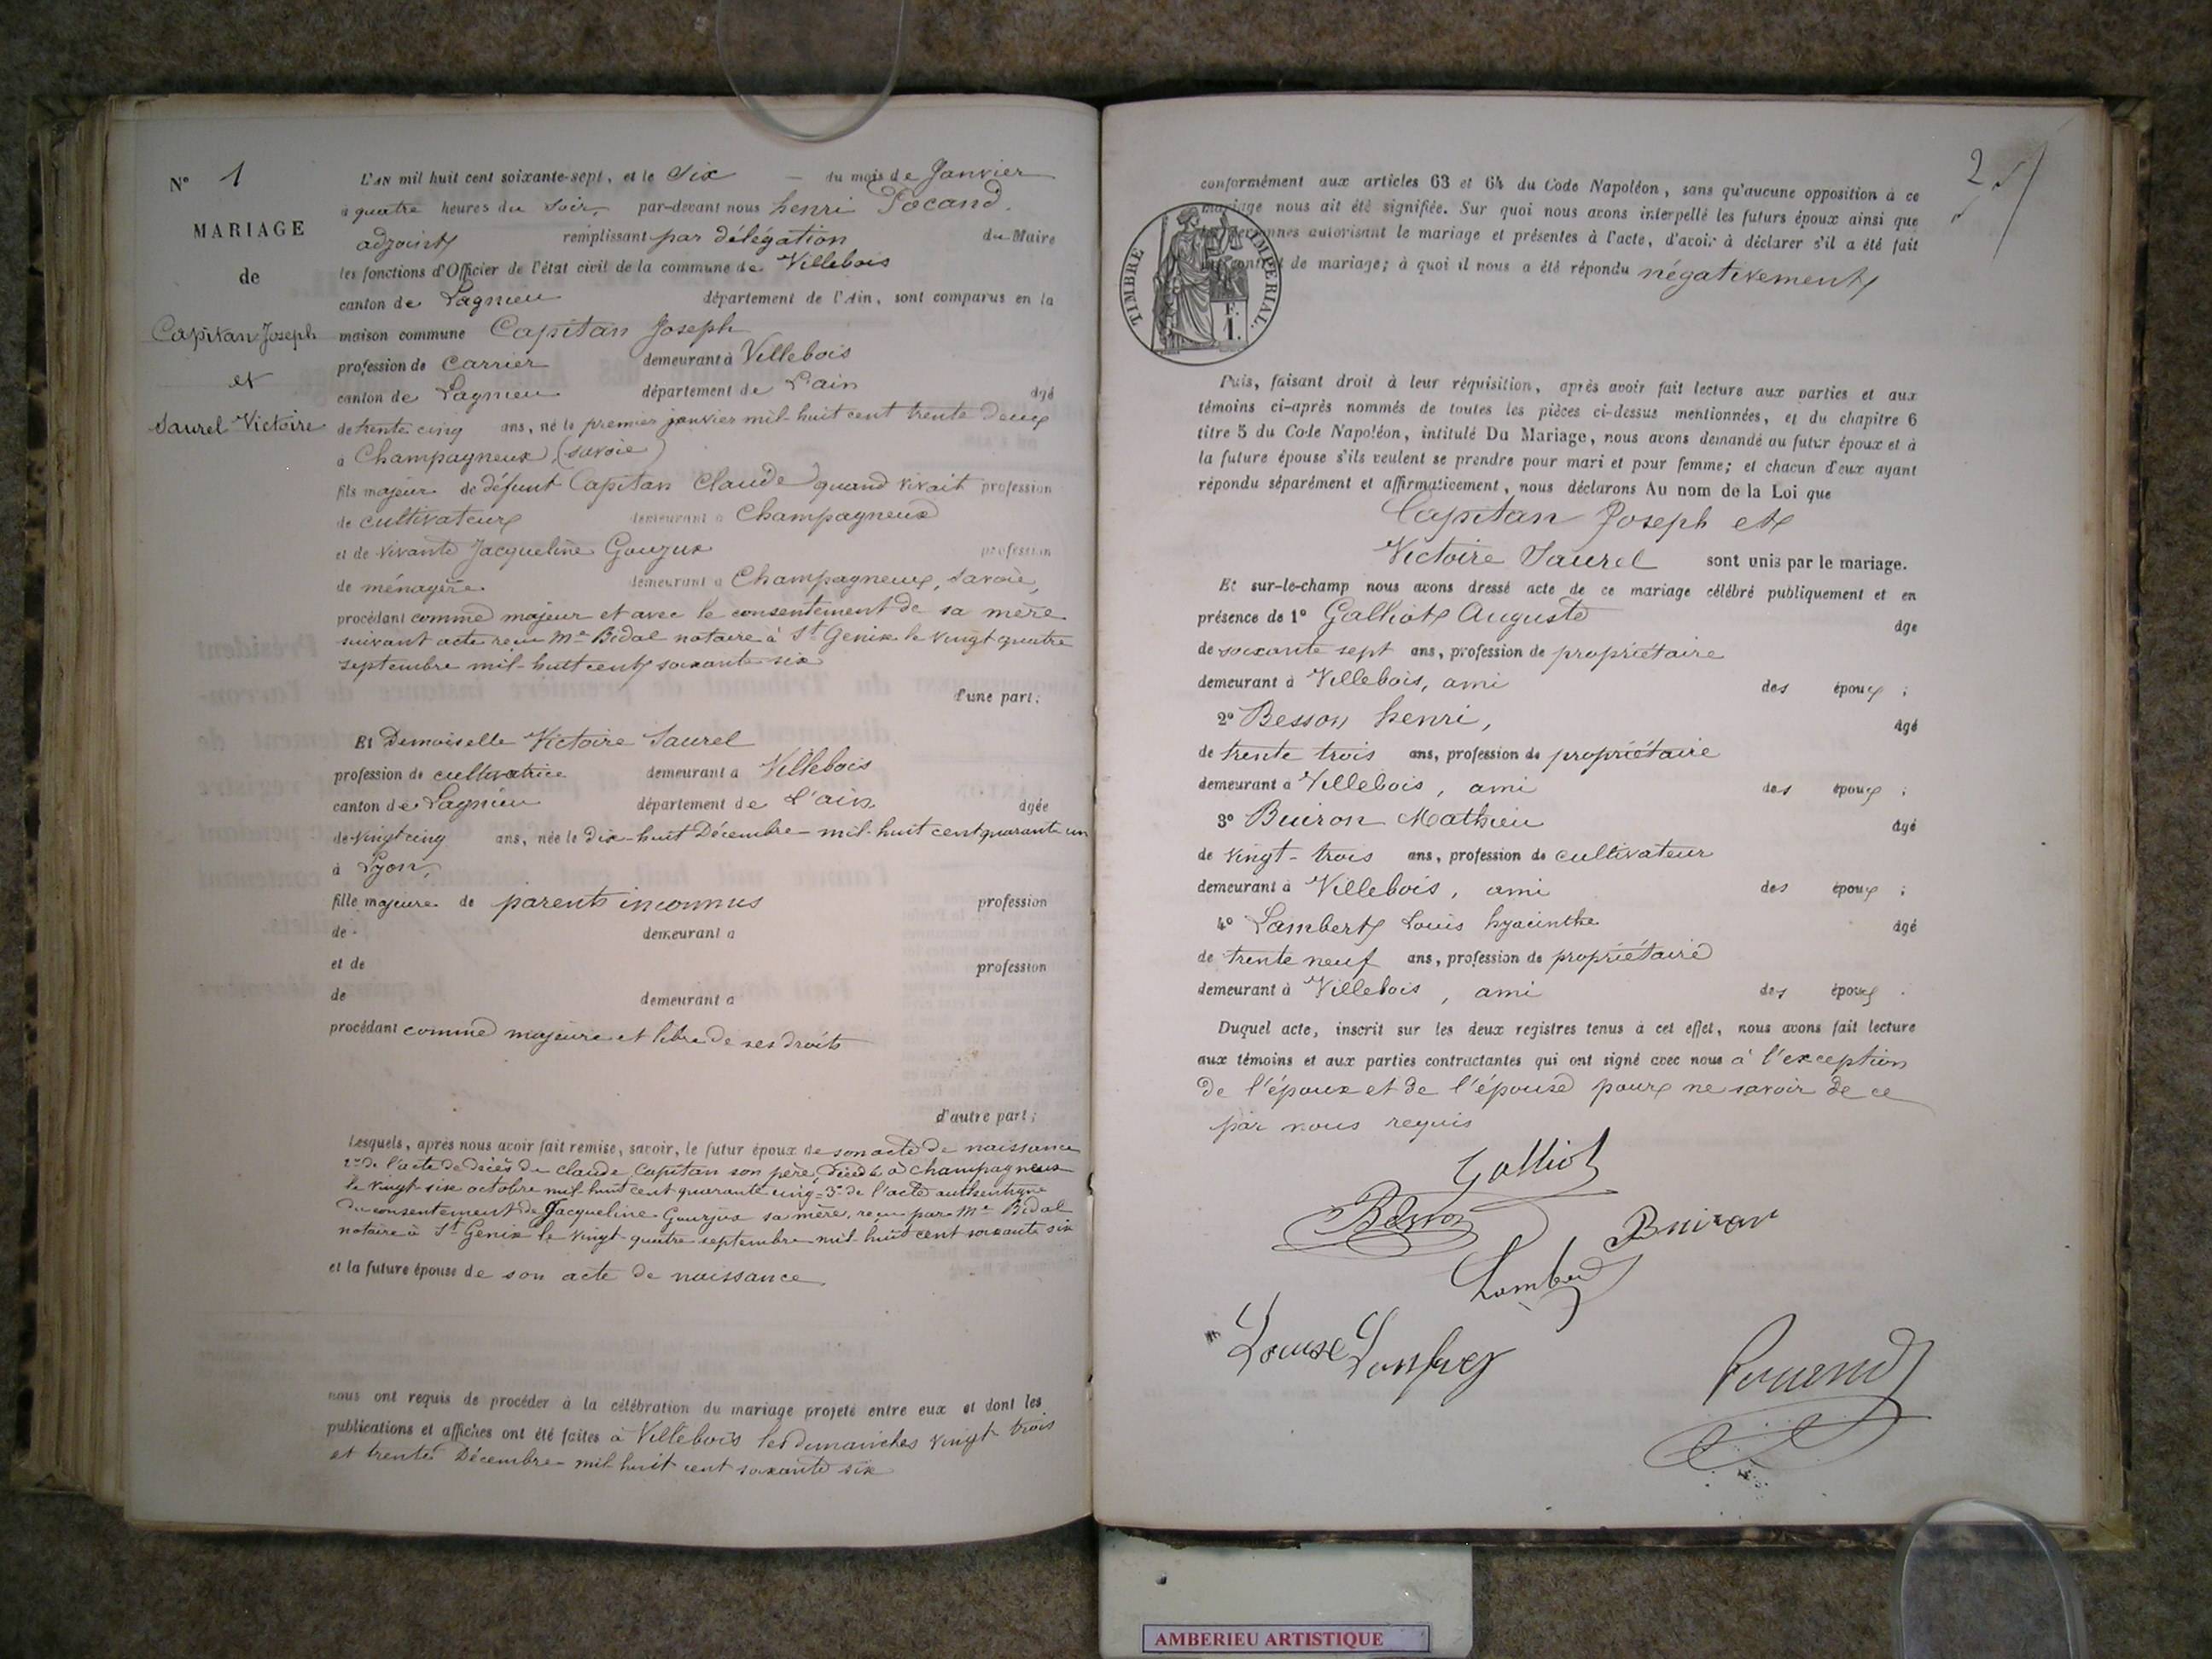 N° 1
MARIAGE
de
Capitan Joseph
et
Saurel Victoire
L'AN mil huit cent soixante-sept, et le Six — du mois de Janvier
à quatre heures du Soir, par-devant nous henri Pocand.
adjoint remplissant par délégation du Maire
les fonctions d'Officier de l'état civil de la commune de Villebois
canton de Lagnieu département de l'Ain, sont comparus en la
maison commune Capitan Joseph
profession de Carrier demeurant à Villebois
canton de Lagnieu département de L'ain âgé
de trente cinq ans, né le premier janvier mil-huit cent trente deux
à Champagneux (savoie)
fils majeur de défunt Capitan Claude quand vivait profession
de cultivateur demeurant à Champagneux
et de vivante Jacqueline Goujux profession
de ménagère demeurant à Champagneux, Savoie,
procédant comme majeur et avec le consentement de sa mère
suivant acte reçu Me Bidal notaire à St Genix le vingt quatre
septembre mil-huit cent soixante six
d'une part;
Et Demoiselle Victoire Saurel
profession de cultivatrice demeurant à Villebois
canton de Lagnieu département de L'ain âgée
de vingt cinq ans, née le dix-huit Décembre mil-huit cent quarante un
à Lyon,
fille majeure de parents inconnus profession
de demeurant à
et de profession
de demeurant à
procédant comme majeure et libre de ses droits
d'autre part;
Lesquels, après nous avoir fait remise, savoir, le futur époux de son acte de naissance
2° de l'acte de décès de Claude Capitan son père, décédé à Champagneux
le vingt-six octobre mil-huit cent quarante cinq = 3° de l'acte authentique
du consentement de Jacqueline Goujux sa mère, reçu par Me Bidal
notaire à St Genix le vingt quatre septembre mil-huit cent soixante six
et la future épouse de son acte de naissance
nous ont requis de procéder à la célébration du mariage projeté entre eux et dont les
publications et affiches ont été faites à Villebois les dimanches vingt trois
et trente Décembre mil huit cent soixante six
2
conformément aux articles 63 et 64 du Code Napoléon, sans qu'aucune opposition à ce
mariage nous ait été signifiée. Sur quoi nous avons interpellé les futurs époux ainsi que
les personnes autorisant le mariage et présentes à l'acte, d'avoir à déclarer s'il a été fait
un contrat de mariage; à quoi il nous a été répondu négativement
TIMBRE IMPÉRIAL.
F.
1.
Puis, faisant droit à leur réquisition, après avoir fait lecture aux parties et aux
témoins ci-après nommés de toutes les pièces ci-dessus mentionnées, et du chapitre 6
titre 5 du Code Napoléon, intitulé Du Mariage, nous avons demandé au futur époux et à
la future épouse s'ils veulent se prendre pour mari et pour femme; et chacun d'eux ayant
répondu séparément et affirmativement, nous déclarons Au nom de la Loi que
Capitan Joseph et
Victoire Saurel sont unis par le mariage.
Et sur-le-champ nous avons dressé acte de ce mariage célébré publiquement et en
présence de 1° Galliot Auguste âgé
de soixante sept ans, profession de propriétaire
demeurant à Villebois, ami des époux ;
2° Besson henri, âgé
de trente trois ans, profession de propriétaire
demeurant à Villebois, ami des époux ;
3° Buiron Mathieu âgé
de vingt-trois ans, profession de cultivateur
demeurant à Villebois, ami des époux ;
4° Lambert Louis hyacinthe âgé
de trente neuf ans, profession de propriétaire
demeurant à Villebois, ami des époux .
Duquel acte, inscrit sur les deux registres tenus à cet effet, nous avons fait lecture
aux témoins et aux parties contractantes qui ont signé avec nous à l'exception
de l'époux et de l'épouse pour ne savoir de ce
par nous requis
Galliot
Besson
Buiron
Lambert
Louise
Pocand
AMBERIEU ARTISTIQUE